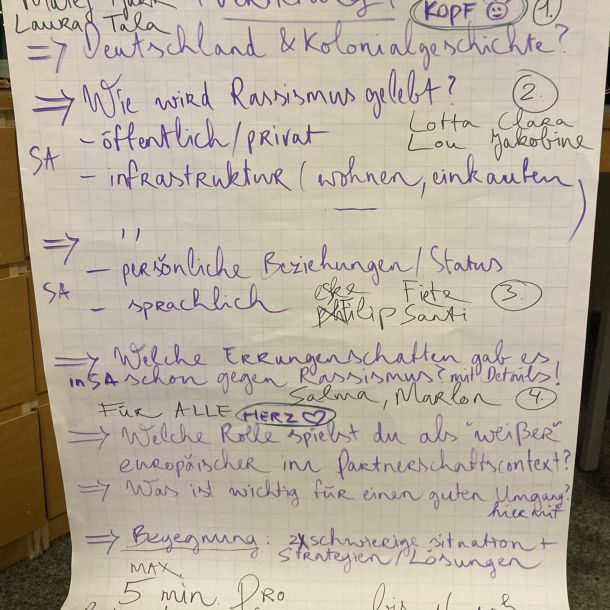 Laura, Tala KOPF 1.
=> Deutschland & Kolonialgeschichte?
=> Wie wird Rassismus gelebt? 2.
- öffentlich/privat Lotta Clara
SA Lou Jakobine
- infrastruktur (wohnen, einkaufen,
—)
=> ''
- persönliche Beziehungen/Status
SA - sprachlich Fiete 3.
Philip Santi
=> Welche Errungenschaften gab es
in SA schon gegen Rassismus? mit Details!
Salma, Marlon 4.
FÜR ALLE HERZ ♡
=> Welche Rolle spielst du als "weißer"
europäischer im Partnerschaftscontext?
=> Was ist wichtig für einen guten Umgang?
hiermit
=> Begegnung: 2x schwierige situation +
Strategien/Lösungen
MAX.
5 min. PRO